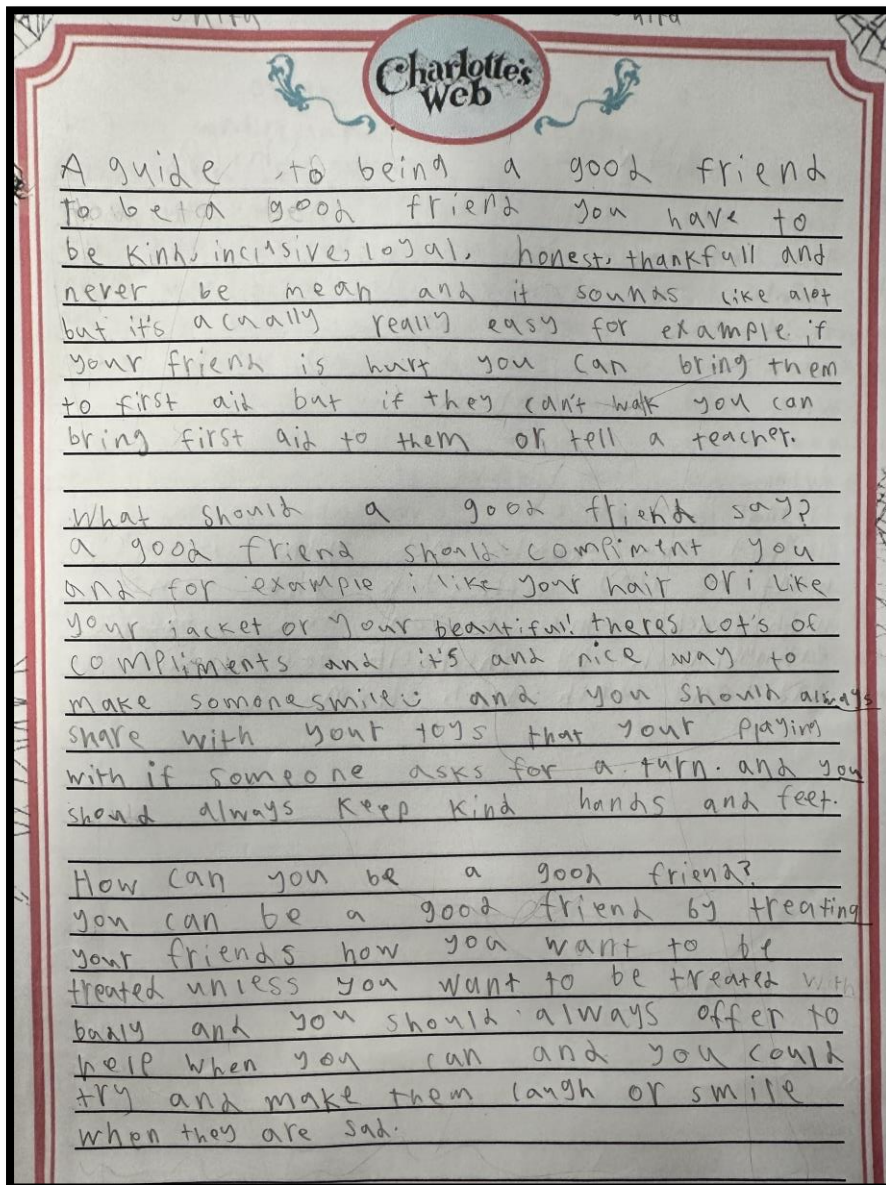 Charlotte's
Web
A guide to being a good friend
to be a good friend you have to
be kind, inclusive, loyal, honest, thankfull and
never be mean and it sounds like alot
but it's acually really easy for example if
your friend is hurt you can bring them
to first aid but if they can't walk you can
bring first aid to them or tell a teacher.
What should a good friend say?
a good friend should compliment you
and for example i like your hair or i like
your jacket or your beautiful! theres lot's of
compliments and it's and nice way to
make somone smile and you should always
share with your toys that your playing
with if someone asks for a turn. and you
should always keep kind hands and feet.
How can you be a good friend?
you can be a good friend by treating
your friends how you want to be
treated unless you want to be treated with
badly and you should always offer to
help when you can and you could
try and make them laugh or smile
when they are sad.